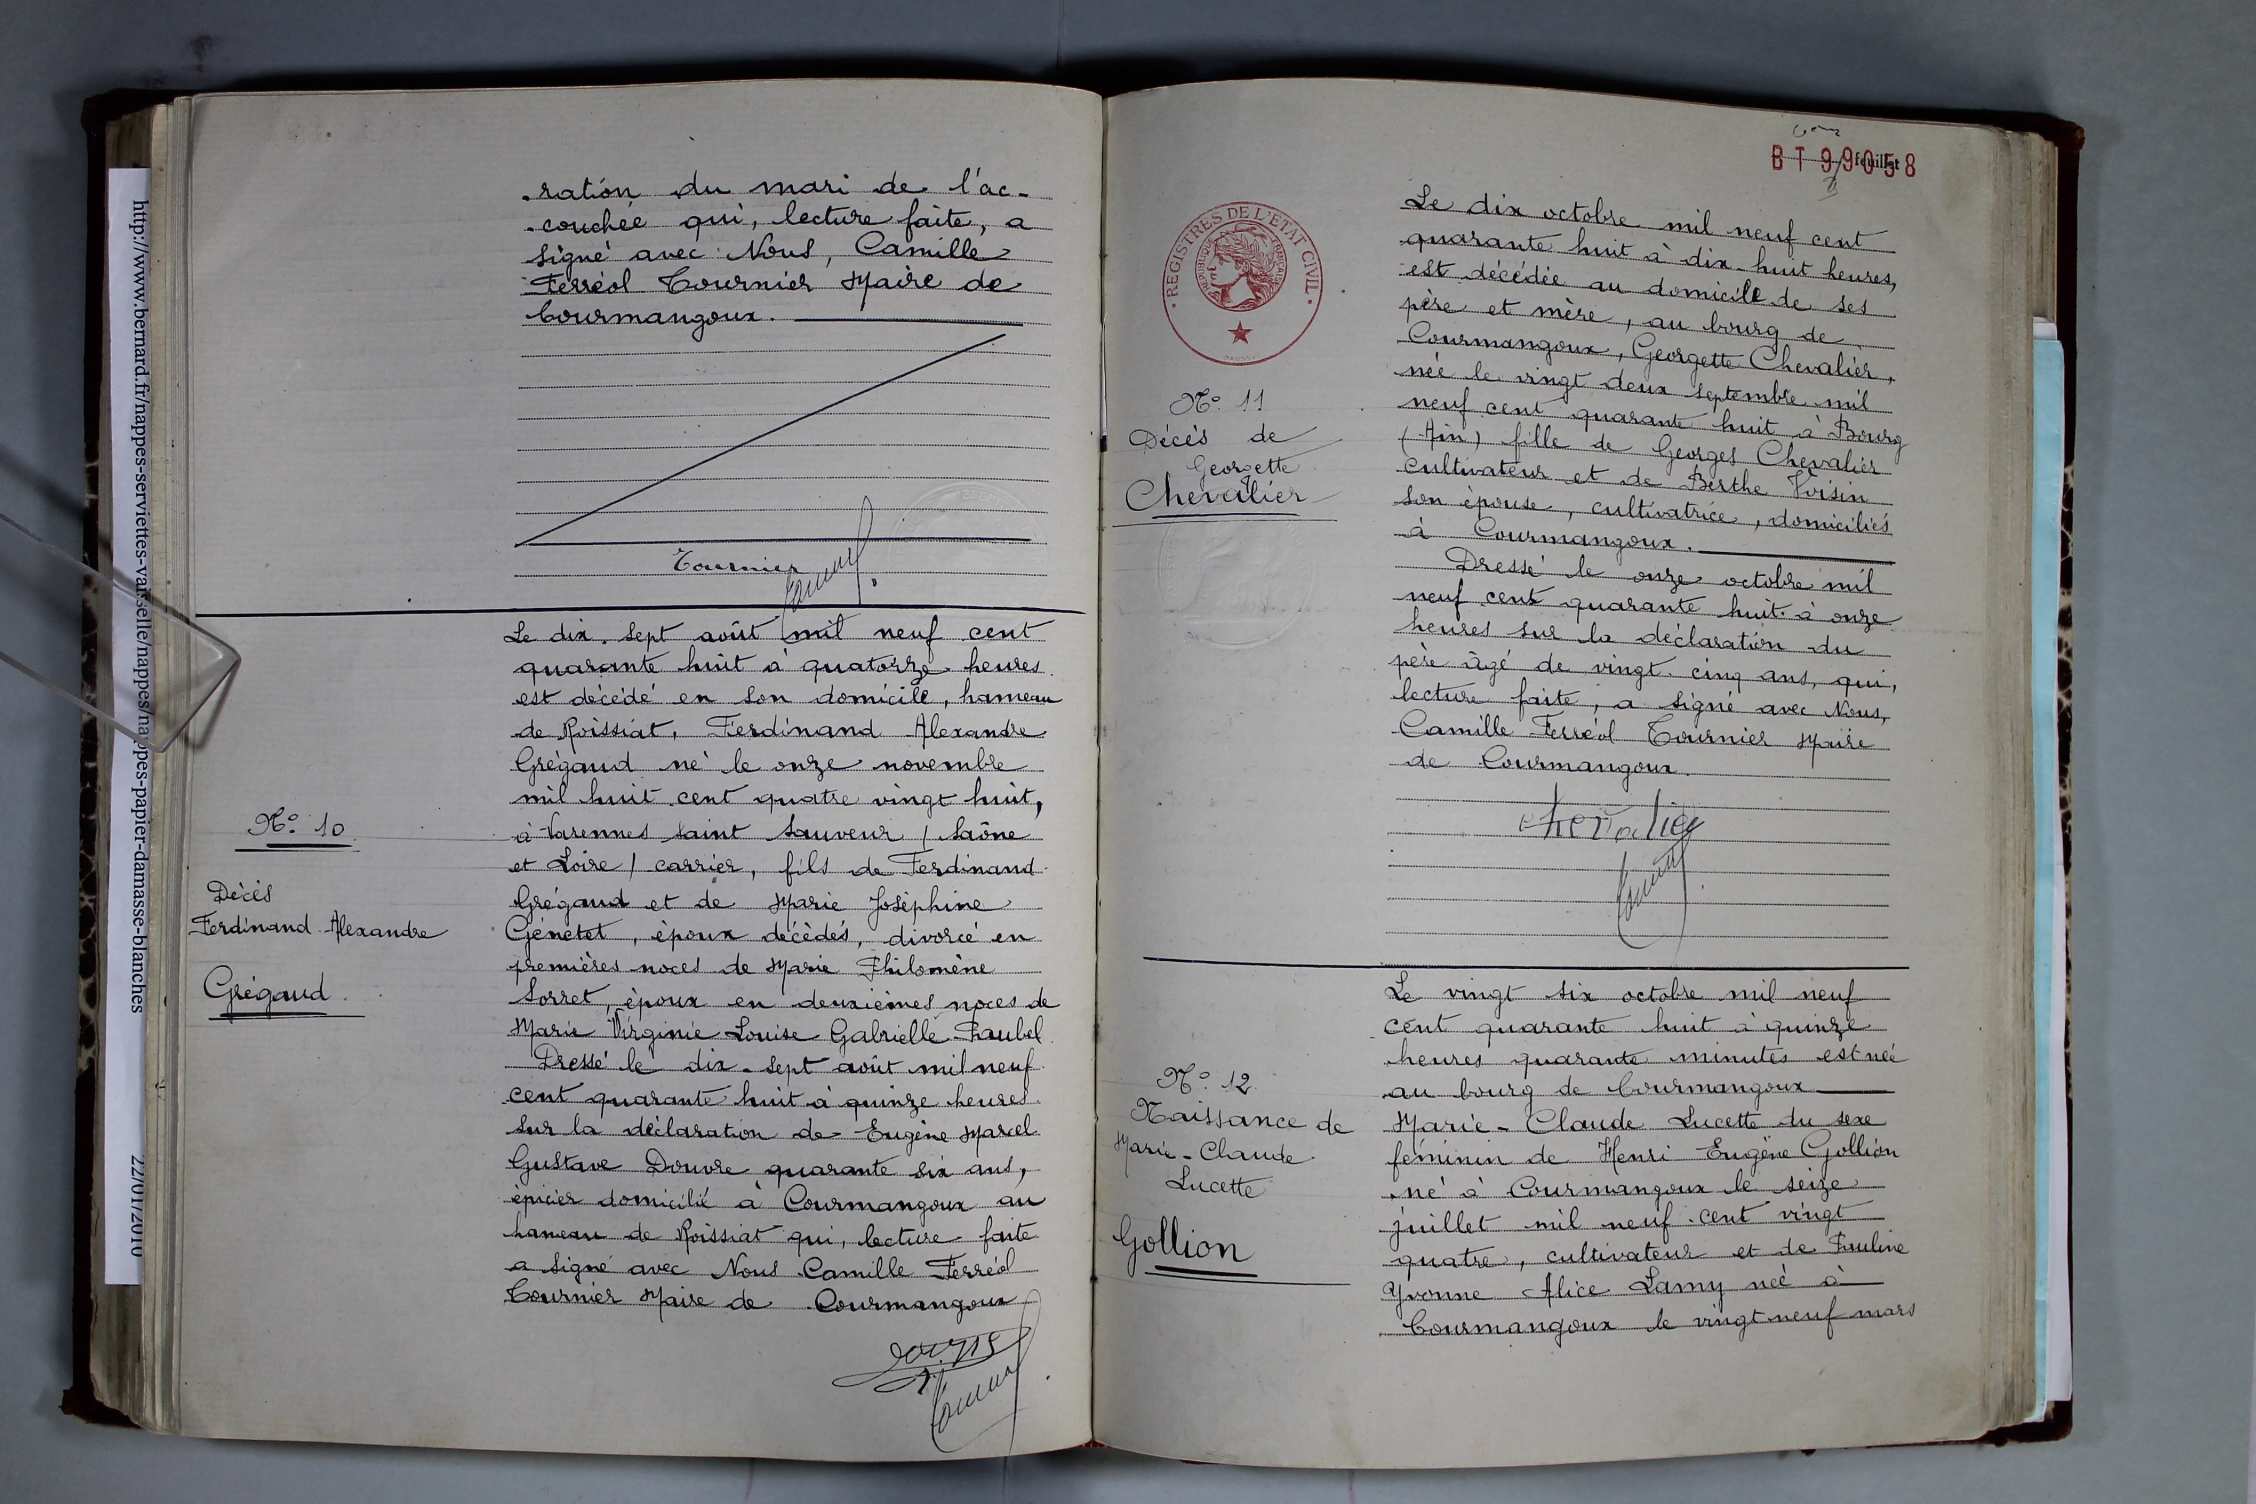 ration du mari de l'ac-
couchée qui, lecture faite, a
signé avec Nous, Camille
Ferréol Tournier Maire de
Courmangoux.
Tournier
Le dix-sept août mil neuf cent
quarante huit à quatorze heures
est décédé en son domicile, hameau
de Roissiat, Ferdinand Alexandre
Grégaud né le onze novembre
mil huit cent quatre vingt huit,
à Varennes Saint Sauveur (Saône
et Loire) carrier, fils de Ferdinand
Grégaud et de Marie Joséphine
Génetet, époux décédés, divorcé en
premières noces de Marie Philomène
Sorret, époux en deuxièmes noces de
Marie Virginie Louise Gabrielle Paubel
Dressé le dix-sept août mil neuf
cent quarante huit à quinze heures
sur la déclaration de Eugène Marcel
Gustave Douvre quarante six ans,
épicier domicilié à Courmangoux au
hameau de Roissiat qui, lecture faite
a signé avec Nous Camille Ferréol
Tournier Maire de Courmangoux
N° 10
Décès
Ferdinand Alexandre
Grégaud
http://www.bernard.fr/nappes-serviettes-vaisselle/nappes/nappes-papier-damasse-blanches
22/01/2010
BT 99058
feuillet
REGISTRES DE L'ETAT CIVIL
REPUBLIQUE FRANÇAISE
Le dix octobre mil neuf cent
quarante huit à dix-huit heures,
est décédée au domicile de ses
père et mère, au bourg de
Courmangoux, Georgette Chevalier,
née le vingt deux septembre mil
neuf cent quarante huit à Bourg
(Ain) fille de Georges Chevalier
cultivateur et de Berthe Voisin
son épouse, cultivatrice, domiciliés
à Courmangoux.
Dressé le onze octobre mil
neuf cent quarante huit à onze
heures sur la déclaration du
père âgé de vingt-cinq ans, qui,
lecture faite, a signé avec Nous,
Camille Ferréol Tournier Maire
de Courmangoux.
Chevalier
N° 11
Décès de
Georgette
Chevalier
Le vingt six octobre mil neuf
cent quarante huit à quinze
heures quarante minutes est née
au bourg de Courmangoux
Marie-Claude Lucette du sexe
féminin de Henri Eugène Gollion
né à Courmangoux le seize
juillet mil neuf cent vingt
quatre, cultivateur et de Pauline
Yvonne Alice Lamy née à
Courmangoux le vingt neuf mars
N° 12
Naissance de
Marie-Claude
Lucette
Gollion